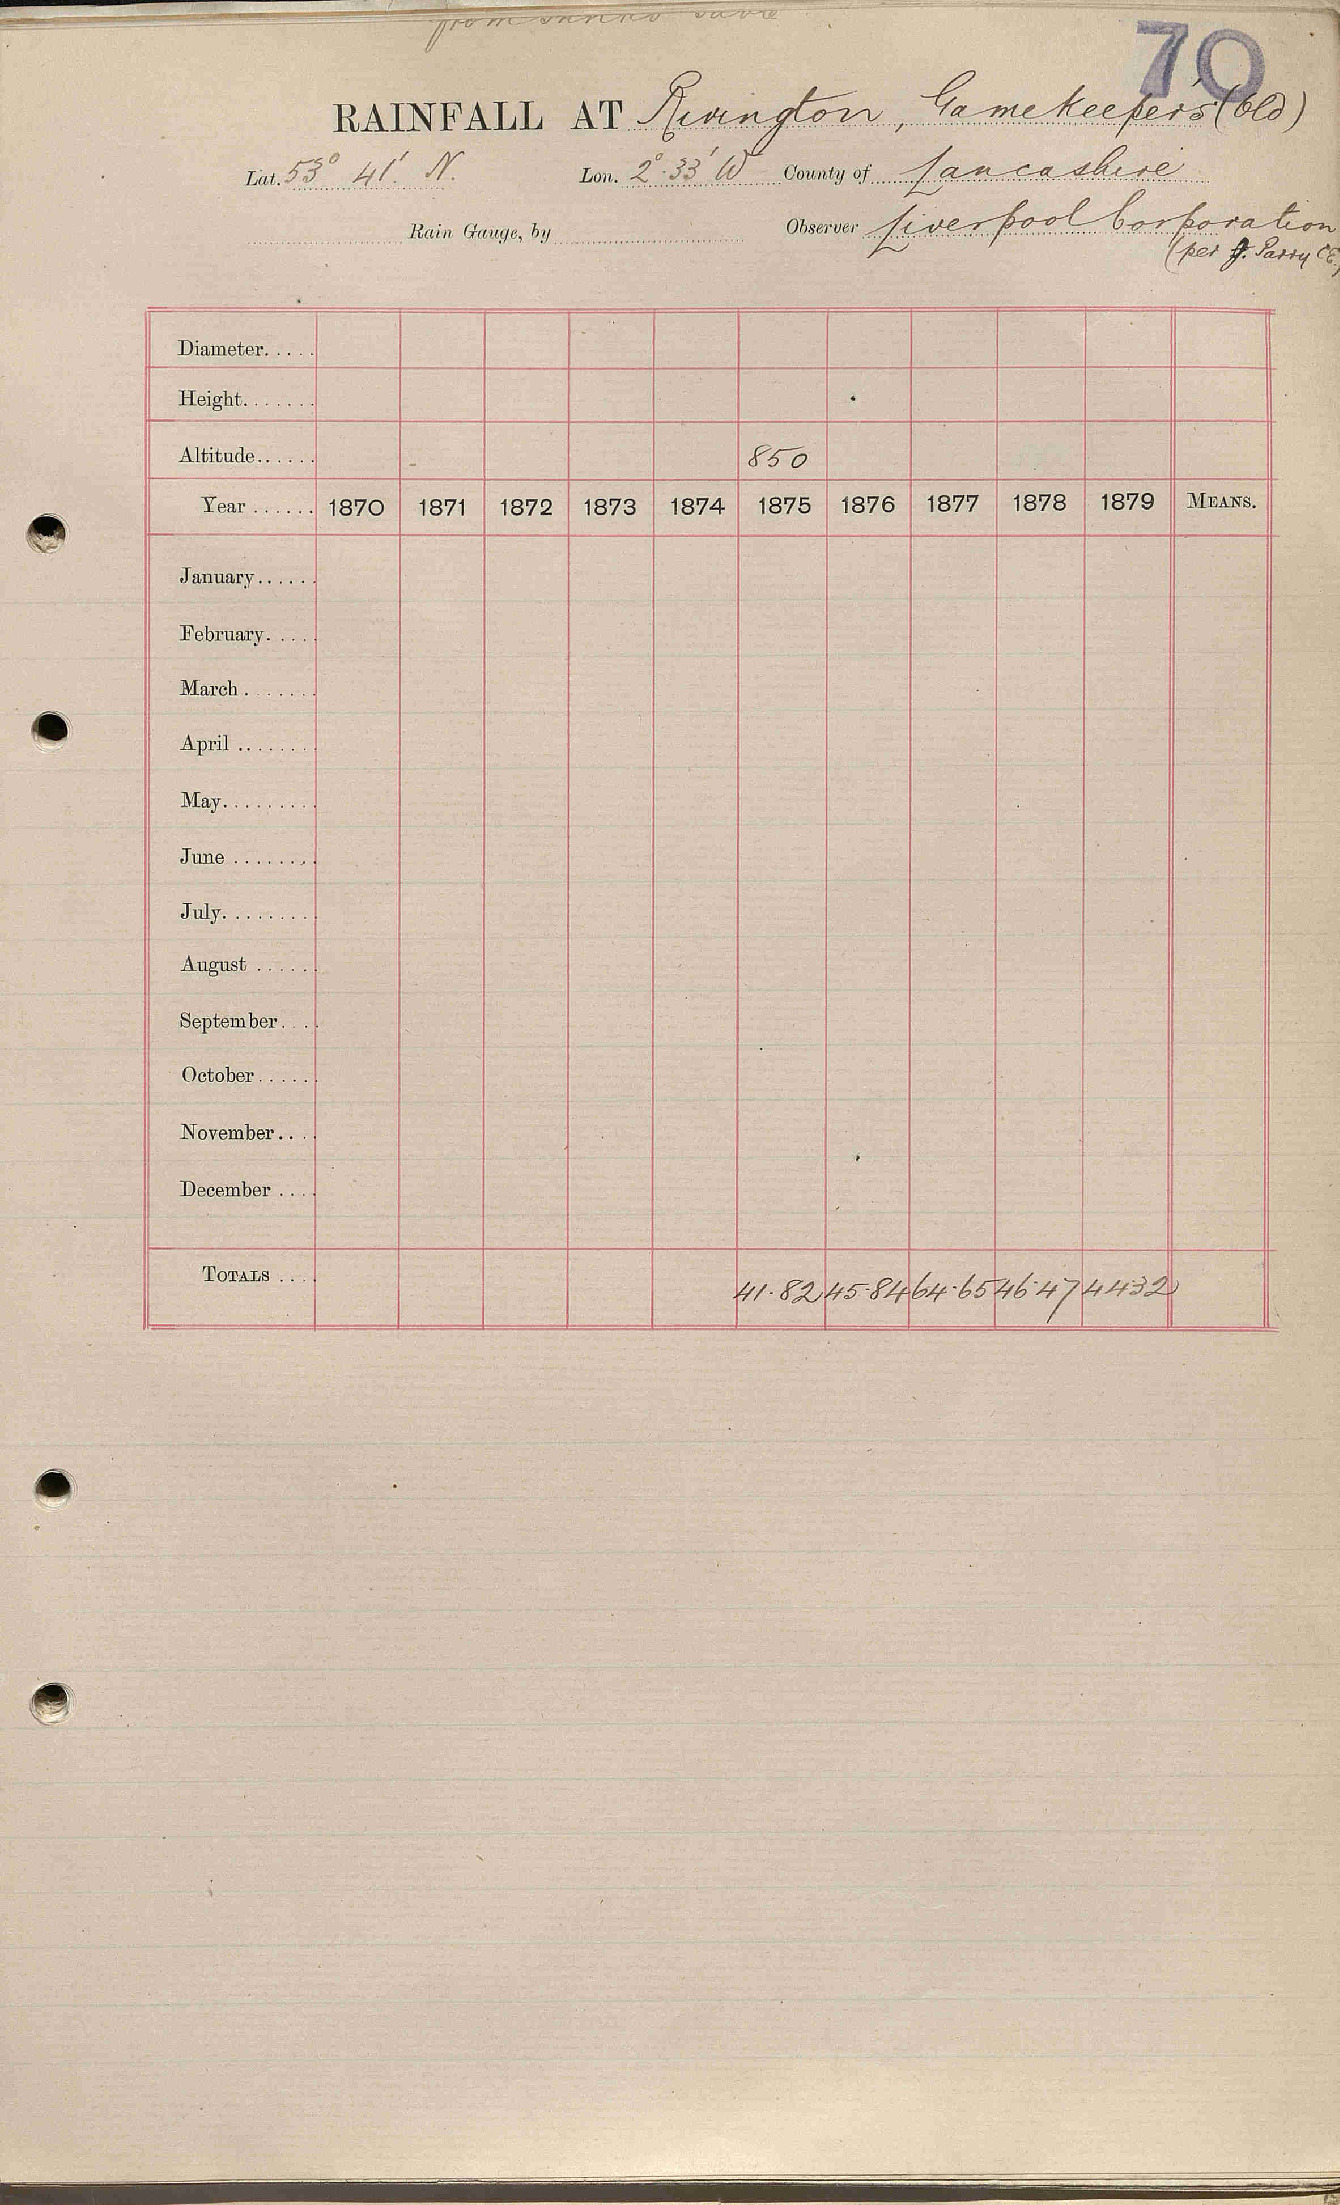 70
RAINFALL AT Rivington, Gamekeeper's (Old)
Lat. 53° 41' N. Lon. 2°·33' W County of Lancashire
Rain Gauge, by Observer Liverpool Corporation
(per J. Parry CE.)
Diameter.....
Height.......
Altitude...... 850
Year ...... 1870 1871 1872 1873 1874 1875 1876 1877 1878 1879 MEANS.
January......
February.....
March .......
April ........
May.........
June ........
July.........
August ......
September....
October......
November....
December ....
TOTALS .... 41·82 45·84 64·65 46·47 44·32